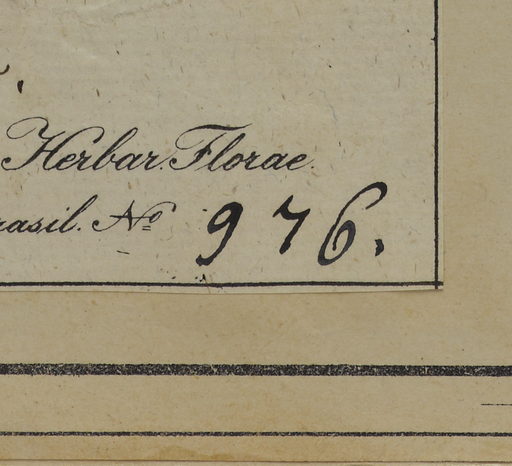 Herbar. Florae
rasil. No 976.